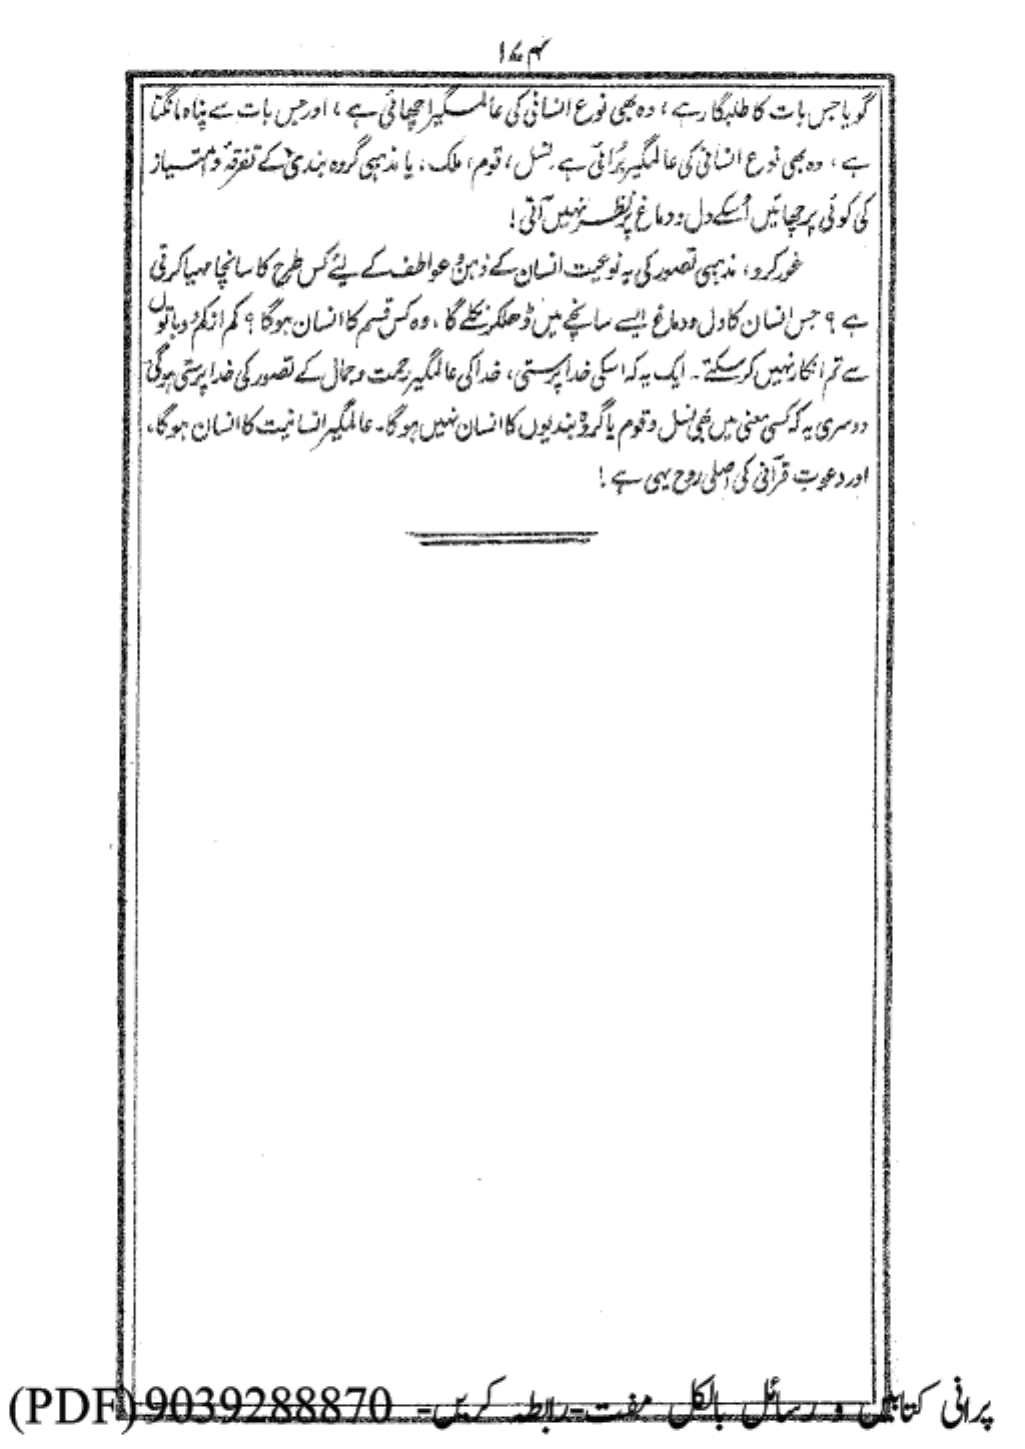 ۱۷۴
گویا جس بات کا طلبگار ہے، وہ بھی نوع انسانی کی عالمگیر اچھائی ہے، اور جس بات سے پناہ مانگتا
ہے، وہ بھی نوع انسانی کی عالمگیر بُرائی ہے۔ نسل، قوم، ملک، یا مذہبی گروہ بندی کے تفرقہ و امتیاز
کی کوئی پرچھائیں اُسکے دل و دماغ پر نظر نہیں آتی!
غور کرو، مذہبی تصور کی یہ نوعیت انسان کے ذہن و عواطف کے لیئے کس طرح کا سانچا مہیا کرتی
ہے؟ جس انسان کا دل و دماغ ایسے سانچے میں ڈھلکر نکلے گا، وہ کس قسم کا انسان ہوگا؟ کم از کم دو باتوں
سے تم انکار نہیں کر سکتے۔ ایک یہ کہ اسکی خدا پرستی، خدا کی عالمگیر رحمت و جمال کے تصور کی خدا پرستی ہوگی
دوسری یہ کہ کسی معنی میں بھی نسل و قوم یا گروہ بندیوں کا انسان نہیں ہوگا۔ عالمگیر انسانیت کا انسان ہوگا،
اور دعوت قرآنی کی اصلی روح یہی ہے!
پرانی کتابیں و رسائل بالکل مفت-رابطہ کریں- 9039288870 (PDF)